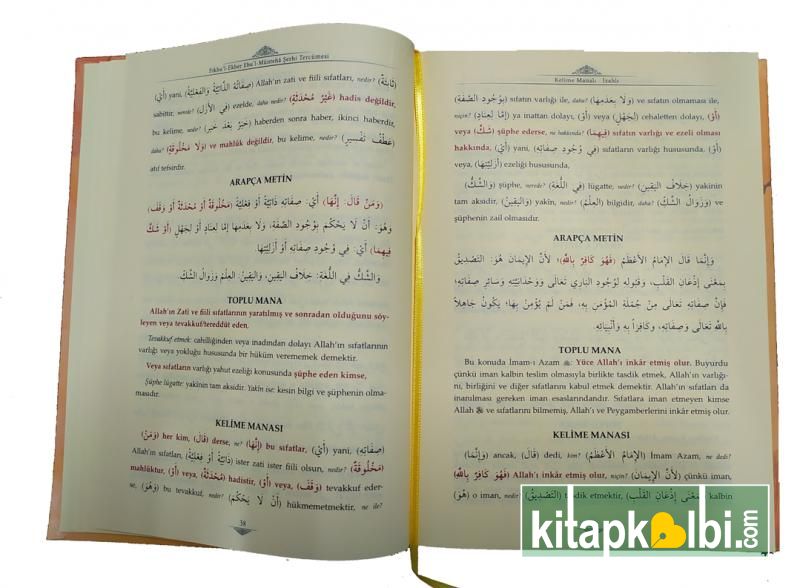 Fıkhu'l-Ekber Ebu'l-Münteha Şerhi Tercümesi
(ثَابِتَةٌ) (صِفَاتُهُ الذَّاتِيَّةُ وَالْفِعْلِيَّةُ) Allah'ın zati ve fiili sıfatları, nedir? (أَيْ) yani,
sabittir, nerede? (فِي الْأَزَلِ) ezelde, daha nedir? (غَيْرُ مُحْدَثَةٍ) hadis değildir,
bu kelime, nedir? (خَبَرٌ بَعْدَ خَبَرٍ) haberden sonra haber, ikinci haberdir,
daha? (وَلَا مَخْلُوقَةٍ) ve mahlûk değildir, bu kelime, nedir? (عَطْفُ تَفْسِيرٍ)
atıf tefsirdir.
ARAPÇA METİN
(وَمَنْ قَالَ: إِنَّهَا) أَيْ: صِفَاتِهِ ذَاتِيَّةً أَوْ فِعْلِيَّةً (مَخْلُوقَةٌ أَوْ مُحْدَثَةٌ أَوْ وَقَفَ)
وَهُوَ: أَنْ لَا يَحْكُمَ بِوُجُودِ الصِّفَةِ، وَلَا بِعَدَمِهَا إِمَّا لِعِنَادٍ أَوْ لِجَهْلٍ (أَوْ شَكَّ
فِيهَا) أَيْ: فِي وُجُودِ صِفَاتِهِ أَوْ أَزَلِيَّتِهَا.
وَالشَّكُّ فِي اللُّغَةِ: خِلَافُ الْيَقِينِ، وَالْيَقِينُ: الْعِلْمُ وَزَوَالُ الشَّكِّ.
TOPLU MANA
Allah'ın Zati ve fiili sıfatlarının yaratılmış ve sonradan olduğunu söy-
leyen veya tevakkuf/tereddüt eden,
Tevakkuf etmek: cahilliğinden veya inadından dolayı Allah'ın sıfatlarının
varlığı veya yokluğu hususunda bir hüküm verememek demektir.
Veya sıfatların varlığı yahut ezeliği konusunda şüphe eden kimse,
Şüphe lügatte: yakînin tam aksidir. Yakîn ise: kesin bilgi ve şüphenin olma-
masıdır.
KELİME MANASI
(وَمَنْ) her kim, (قَالَ) derse, ne? (إِنَّهَا) bu sıfatlar, (أَيْ) yani, (صِفَاتِهِ)
Allah'ın sıfatları, (ذَاتِيَّةً أَوْ فِعْلِيَّةً) ister zati ister fiili olsun, nedir? (مَخْلُوقَةٌ)
mahlûktur, (أَوْ) veya, (مُحْدَثَةٌ) hadistir, (أَوْ) veya, (وَقَفَ) tevakkuf eder-
se, (وَهُوَ) bu tevakkuf, nedir? (أَنْ لَا يَحْكُمَ) hükmemetmektir, ne ile?
38
Kelime Manalı İzahlı
(بِوُجُودِ الصِّفَةِ) sıfatın varlığı ile, (وَلَا بِعَدَمِهَا) ve sıfatın olmaması ile,
niçin? (إِمَّا لِعِنَادٍ) ya inattan dolayı, (أَوْ) veya (لِجَهْلٍ) cehaletten dolayı, (أَوْ)
veya (شَكَّ) şüphe ederse, ne hakkında? (فِيهَا) sıfatın varlığı ve ezeli olması
hakkında, (أَيْ) yani, (فِي وُجُودِ صِفَاتِهِ) sıfatların varlığı hususunda, (أَوْ)
veya, (أَزَلِيَّتِهَا) ezeliği hususunda,
(وَالشَّكُّ) şüphe, nerede? (فِي اللُّغَةِ) lügatte, nedir? (خِلَافُ الْيَقِينِ) yakinin
tam aksidir, (وَالْيَقِينُ) yakîn, nedir? (الْعِلْمُ) bilgidir, daha? (وَزَوَالُ الشَّكِّ) ve
şüphenin zail olmasıdır.
ARAPÇA METİN
وَإِنَّمَا قَالَ الْإِمَامُ الْأَعْظَمُ (فَهُوَ كَافِرٌ بِاللَّهِ)؛ لِأَنَّ الْإِيمَانَ هُوَ: التَّصْدِيقُ
بِمَعْنَى إِذْعَانِ الْقَلْبِ، وَقَبُولِهِ لِوُجُودِ الْبَارِي تَعَالَى وَوَحْدَانِيَّتِهِ وَسَائِرِ صِفَاتِهِ؛
فَإِنَّ صِفَاتِهِ تَعَالَى مِنْ جُمْلَةِ الْمُؤْمَنِ بِهِ، فَمَنْ لَمْ يُؤْمِنْ بِهَا؛ يَكُونُ جَاهِلًا
بِاللَّهِ تَعَالَى وَصِفَاتِهِ، وَكَافِرًا بِهِ وَأَنْبِيَائِهِ.
TOPLU MANA
Bu konuda İmam-ı Azam Yüce Allah'ı inkâr etmiş olur. Buyurdu
çünkü iman kalbin teslim olmasıyla birlikte tasdik etmek, Allah'ın varlığı-
nı, birliğini ve diğer sıfatlarını kabul etmek demektir. Allah'ın sıfatları da
inanılması gereken iman esaslarındandır. Sıfatlara iman etmeyen kimse
Allah ve sıfatlarını bilmemiş, Allah'ı ve Peygamberlerini inkâr etmiş olur.
KELİME MANASI
(وَإِنَّمَا) ancak, (قَالَ) dedi, kim? (الْإِمَامُ الْأَعْظَمُ) İmam Azam, ne dedi?
(فَهُوَ كَافِرٌ بِاللَّهِ) Allah'ı inkar etmiş olur, niçin? (لِأَنَّ الْإِيمَانَ) çünkü iman,
(هُوَ) o iman, nedir? (التَّصْدِيقُ) tasdik etmektir, (بِمَعْنَى إِذْعَانِ الْقَلْبِ) kalbin
kitapkalbi.com